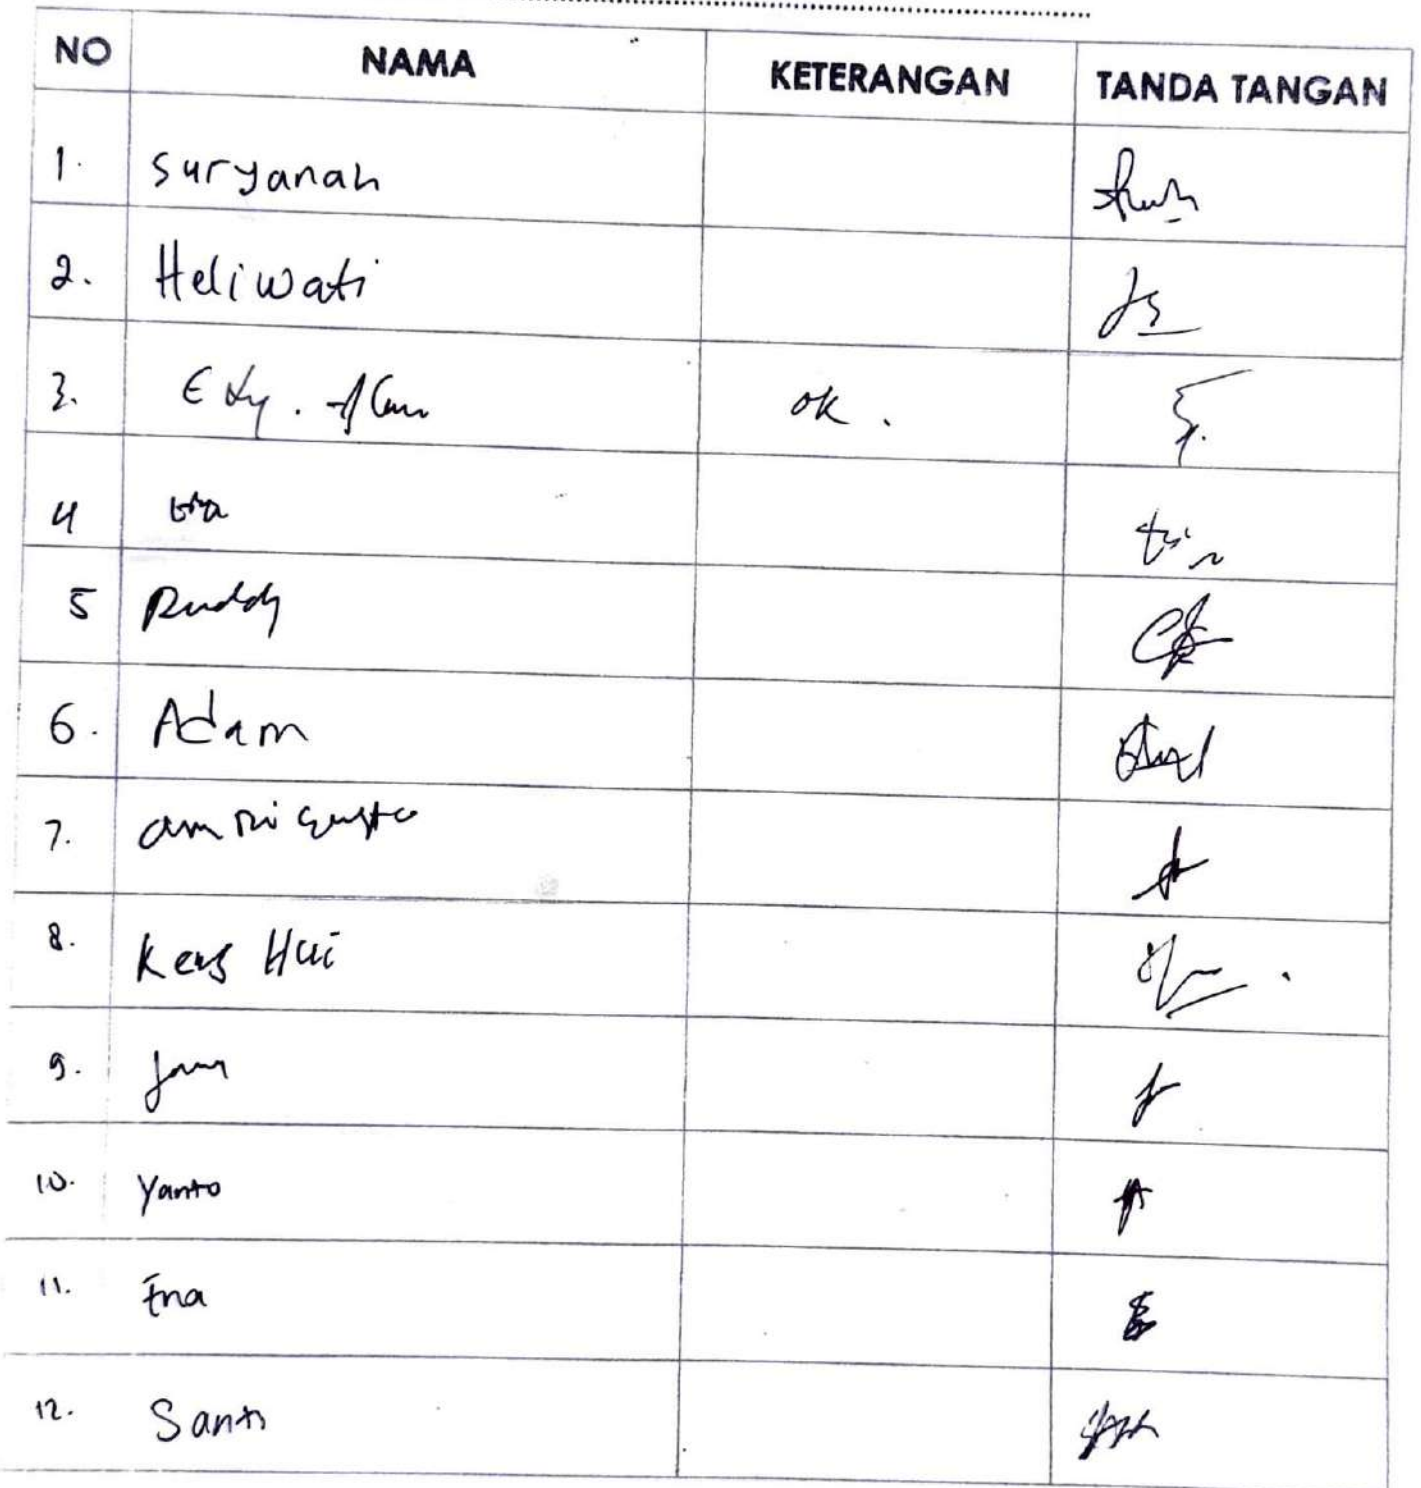 NO NAMA KETERANGAN TANDA TANGAN
1. Suryanah
2. Heliwati
3. Edy. ok.
4
5 Ruddy
6. Adam
7. 
8. Keng Hui
9.
10. Yanto
11. Ena
12. Santi